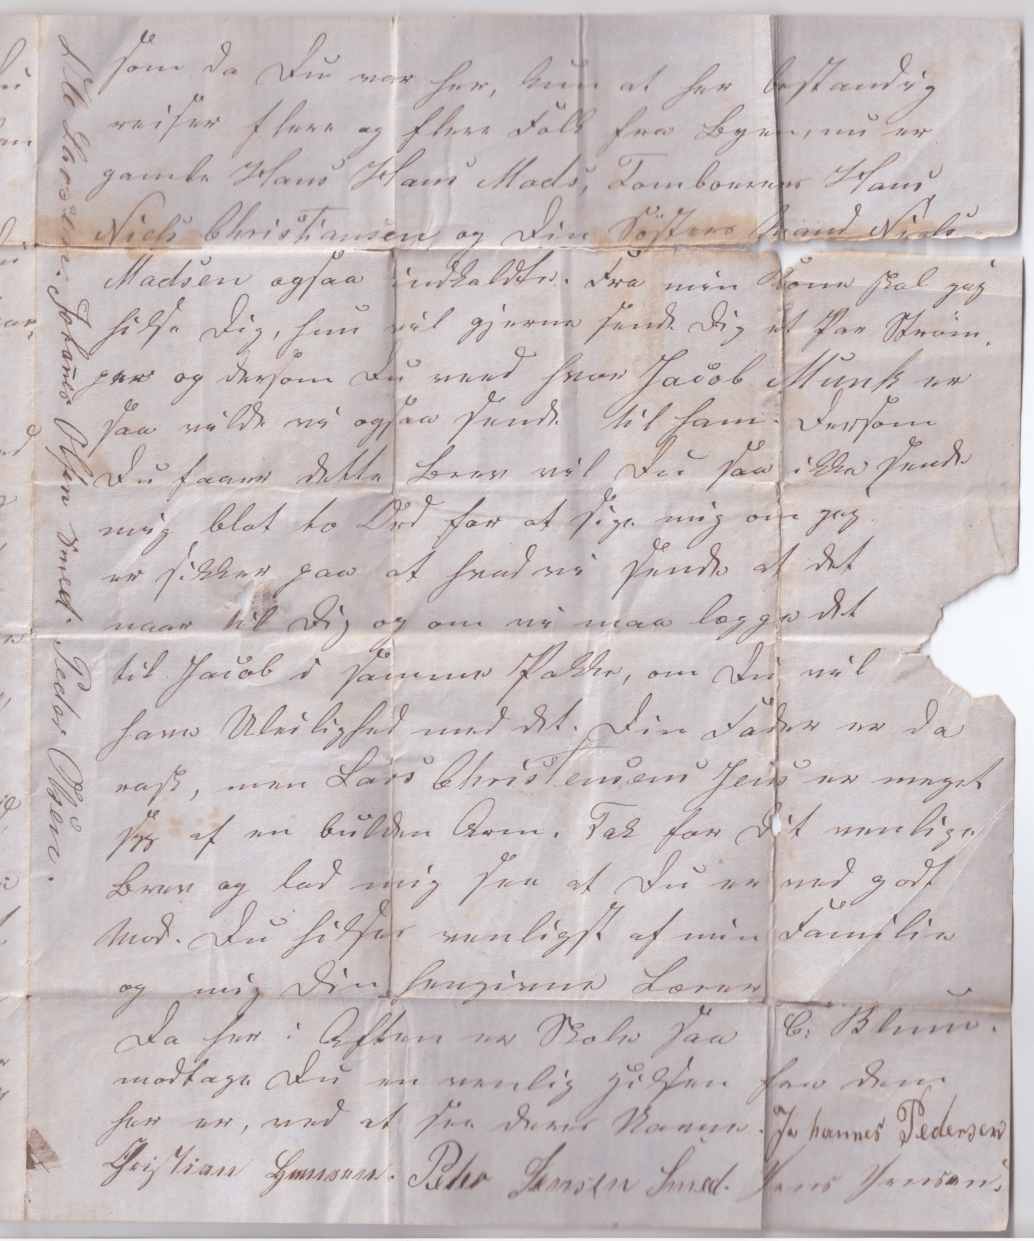 som da Du var her, kun at her bestandig
reiser flere og flere Folk fra Byen, nu er
gamle Hans Hans Mads, Tomboernes Hans
Niels Christiansen og Din Søsters Mand Niels
Madsen ogsaa indkaldte. Fra min Kone skal jeg
hilse Dig, hun vil gjerne sende Dig et Par Strøm-
per og dersom Du veed hvor Jacob Munk er
saa vilde vi ogsaa sende til ham. Dersom
Du faaer dette Brev vil Du saa ikke sende
mig blot to Ord for at sige mig om jeg
er sikker paa at hvad vi sende at det
naaer til Dig og om vi maa lægge det
til Jacob i samme Pakke, om Du vil
have Uleilighed med det. Din Fader er da
rask, men Lars Christensens Jens er meget
syg af en bulden Arm. Tak for Dit venlige
Brev og lad mig see at Du er ved godt
Mod. Du hilses venligst af min Familie
og mig Din hengivne Lærer
C. Blum.
Da her i Aften er Skole saa
modtage Du en venlig Hilsen fra dem
her er, ved at see deres Navne. Johannes Pedersen
Christian Hansen. Peder Jensen Smed. Jens Jensen.
Johans Olsen Smed. Peder Olsen.